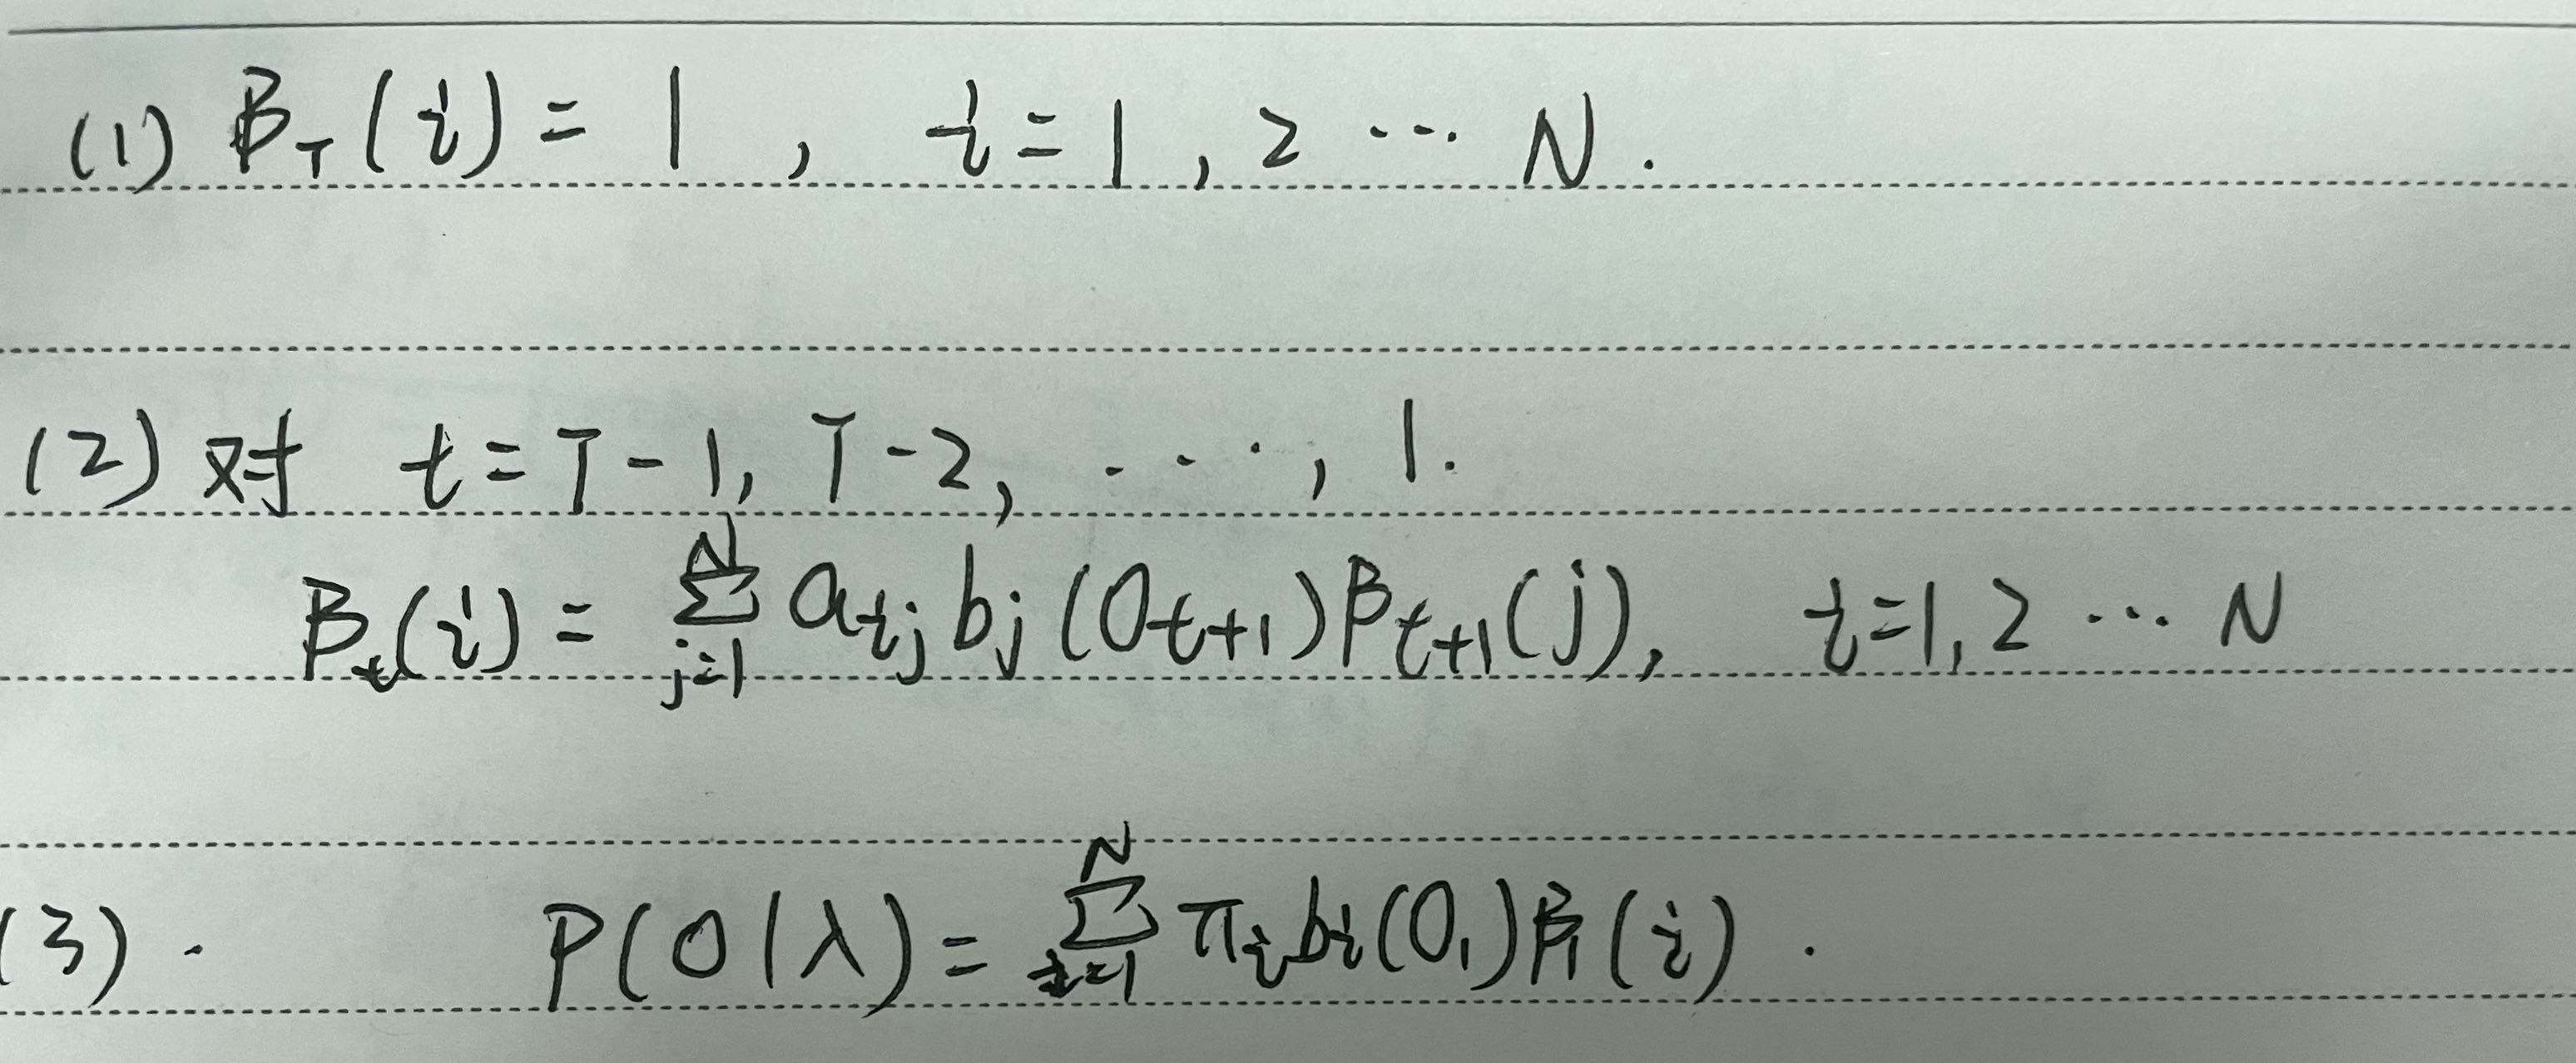 (1) β_T(i) = 1 , i = 1 , 2 ⋯ N .
(2) 对 t = T - 1, T - 2, ⋯ , 1.
β_t(i) = ∑_{j=1}^{N} a_{ij} b_j (O_{t+1}) β_{t+1}(j), i = 1, 2 ⋯ N
(3). P(O|λ) = ∑_{i=1}^{N} π_i b_i(O_1) β_1(i) .